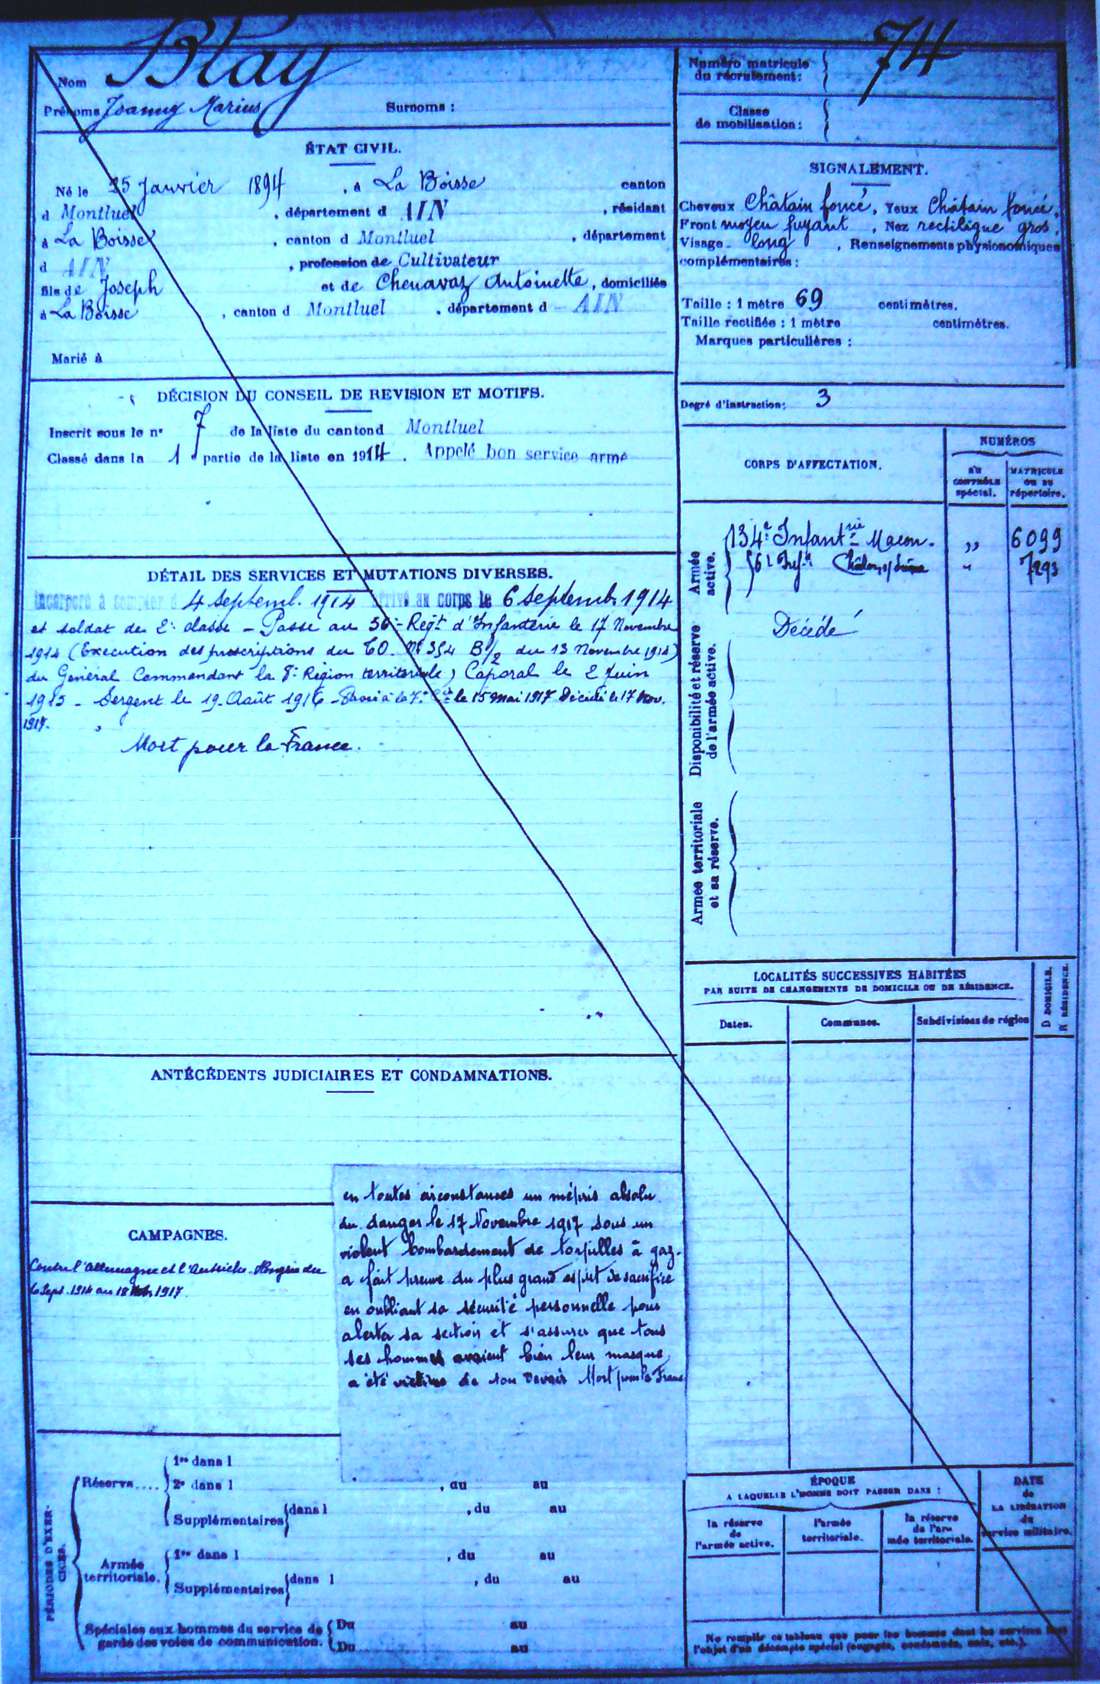 Nom Blay
Prénoms Joanny Marius Surnoms :
Numéro matricule
du recrutement : 74
Classe
de mobilisation :
ÉTAT CIVIL.
Né le 25 Janvier 1894, à La Boisse canton
d Montluel, département d AIN, résidant
à La Boisse, canton d Montluel, département
d AIN, profession de Cultivateur
fils de Joseph et de Chenavaz Antoinette, domiciliés
à La Boisse, canton d Montluel, département d AIN
Marié à
SIGNALEMENT.
Cheveux Châtain foncé, Yeux Châtain foncé.
Front moyen fuyant, Nez rectiligne gros,
Visage long, Renseignements physionomiques
complémentaires :
Taille : 1 mètre 69 centimètres.
Taille rectifiée : 1 mètre centimètres.
Marques particulières :
Degré d'instruction : 3
DÉCISION DU CONSEIL DE REVISION ET MOTIFS.
Inscrit sous le n° 7 de la liste du canton d Montluel
Classé dans la 1 partie de la liste en 1914. Appelé bon service armé
CORPS D'AFFECTATION.
NUMÉROS
AU
CONTRÔLE
spécial.
MATRICULE
OU AU
répertoire.
Armée
active.
134e Infantrie Macon. " 6099
56e Infie Châlon s/ Saône " 7293
Disponibilité et réserve
de l'armée active.
Décédé
Armée territoriale
et sa réserve.
DÉTAIL DES SERVICES ET MUTATIONS DIVERSES.
Incorporé à compter d 4 Septemb. 1914 arrivé au corps le 6 Septembre 1914
et soldat de 2e classe – Passé au 56e Régt d'Infanterie le 17 Novembre
1914 (Exécution des prescriptions du T.O. No 354 B1/2 du 13 Novembre 1914)
du Général Commandant la 8e Région territoriale) Caporal le 2 Juin
1915 – Sergent le 19 Août 1916 – Passé à la 7e Cie le 15 mai 1917 Décédé le 17 Nov.
1917.
Mort pour la France.
LOCALITÉS SUCCESSIVES HABITÉES
PAR SUITE DE CHANGEMENTS DE DOMICILE OU DE RÉSIDENCE.
Dates. Communes. Subdivisions de région
D DOMICILE.
R RÉSIDENCE.
ANTÉCÉDENTS JUDICIAIRES ET CONDAMNATIONS.
CAMPAGNES.
Contre l'Allemagne et l'Autriche-Hongrie du
6 Sept. 1914 au 1917
en toutes circonstances un mépris absolu
du danger le 17 Novembre 1917 sous un
violent bombardement de torpilles à gaz
a fait preuve du plus grand esprit de sacrifice
en oubliant sa sécurité personnelle pour
alerter sa section et s'assurer que tous
ses hommes avaient bien leur masque
a été victime de son Devoir Mort pour la France
PÉRIODES D'EXERCICES.
Réserve....
1re dans l
2e dans l , du au
Supplémentaires dans l , du au
Armée
territoriale.
1re dans l , du au
Supplémentaires dans l , du au
Spéciales aux hommes du service de
garde des voies de communication.
Du au
Du au
ÉPOQUE
A LAQUELLE L'HOMME DOIT PASSER DANS :
la réserve
de
l'armée active.
l'armée
territoriale.
la réserve
de l'ar-
mée territoriale.
DATE
de
LA LIBÉRATION
du
service militaire.
Ne remplir ce tableau que pour les hommes dont les services font
l'objet d'un décompte spécial (engagés, condamnés, omis, etc.).